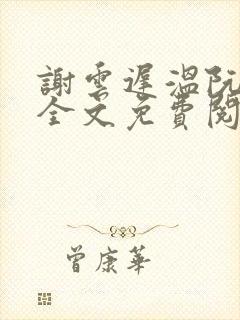 謝雲遲溫阮
全文免費閱
曾康華